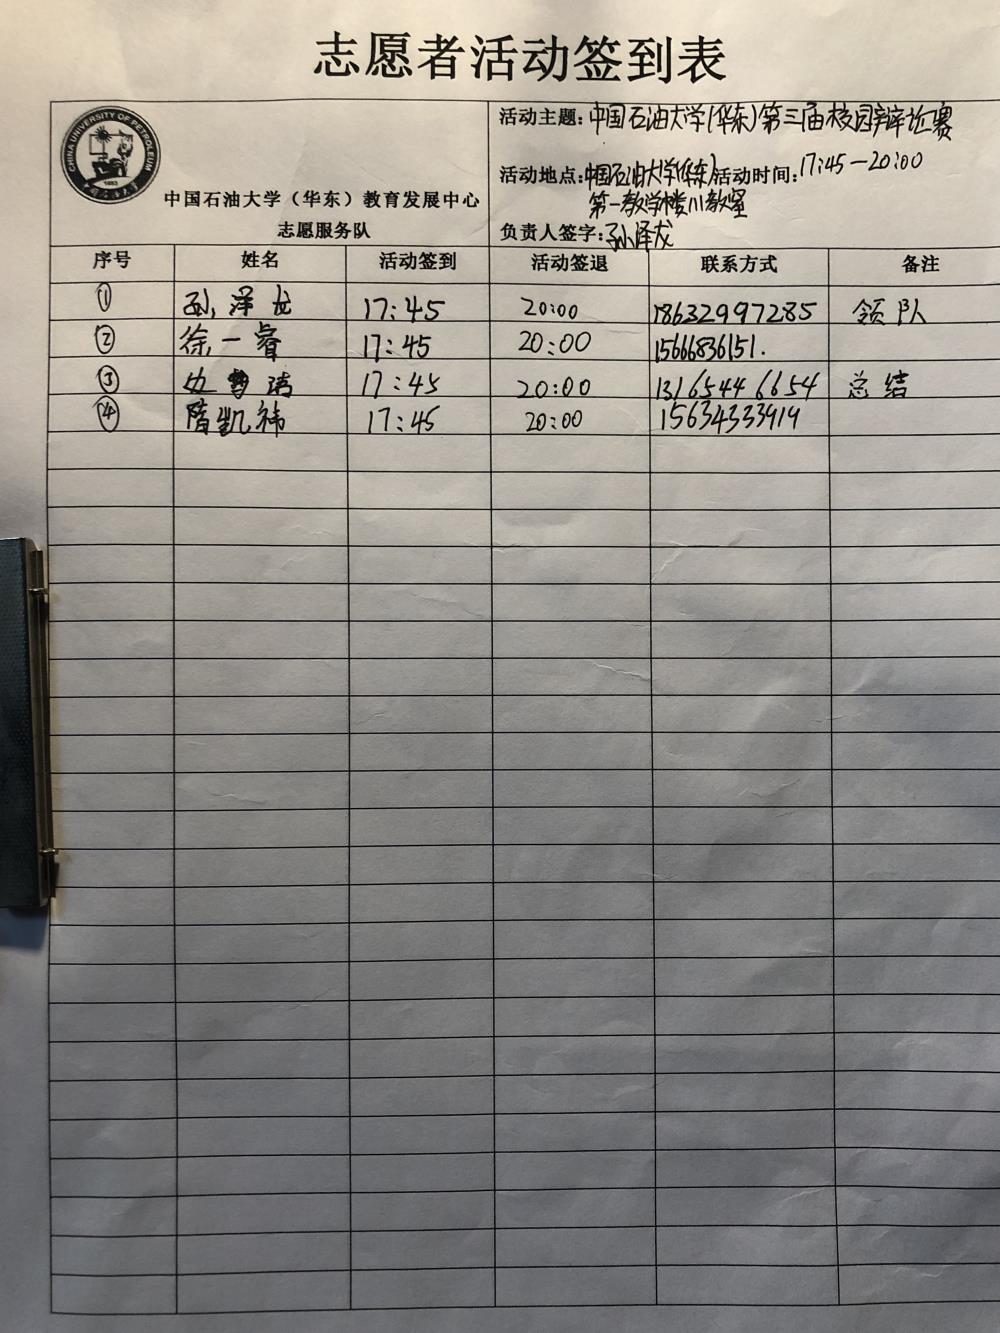 志愿者活动签到表
CHINA UNIVERSITY OF PETROLEUM
1953
中国石油大学
中国石油大学（华东）教育发展中心
志愿服务队
活动主题：中国石油大学(华东)第三届校园辩论赛
活动地点：中国石油大学(华东) 活动时间：17:45—20:00
第一教学楼111教室
负责人签字：孙泽龙
序号 姓名 活动签到 活动签退 联系方式 备注
① 孙泽龙 17:45 20:00 18632997285 领队
② 徐一睿 17:45 20:00 15666836151.
③ 17:45 20:00 13165446654 总结
④ 隋凯祎 17:45 20:00 15634333919